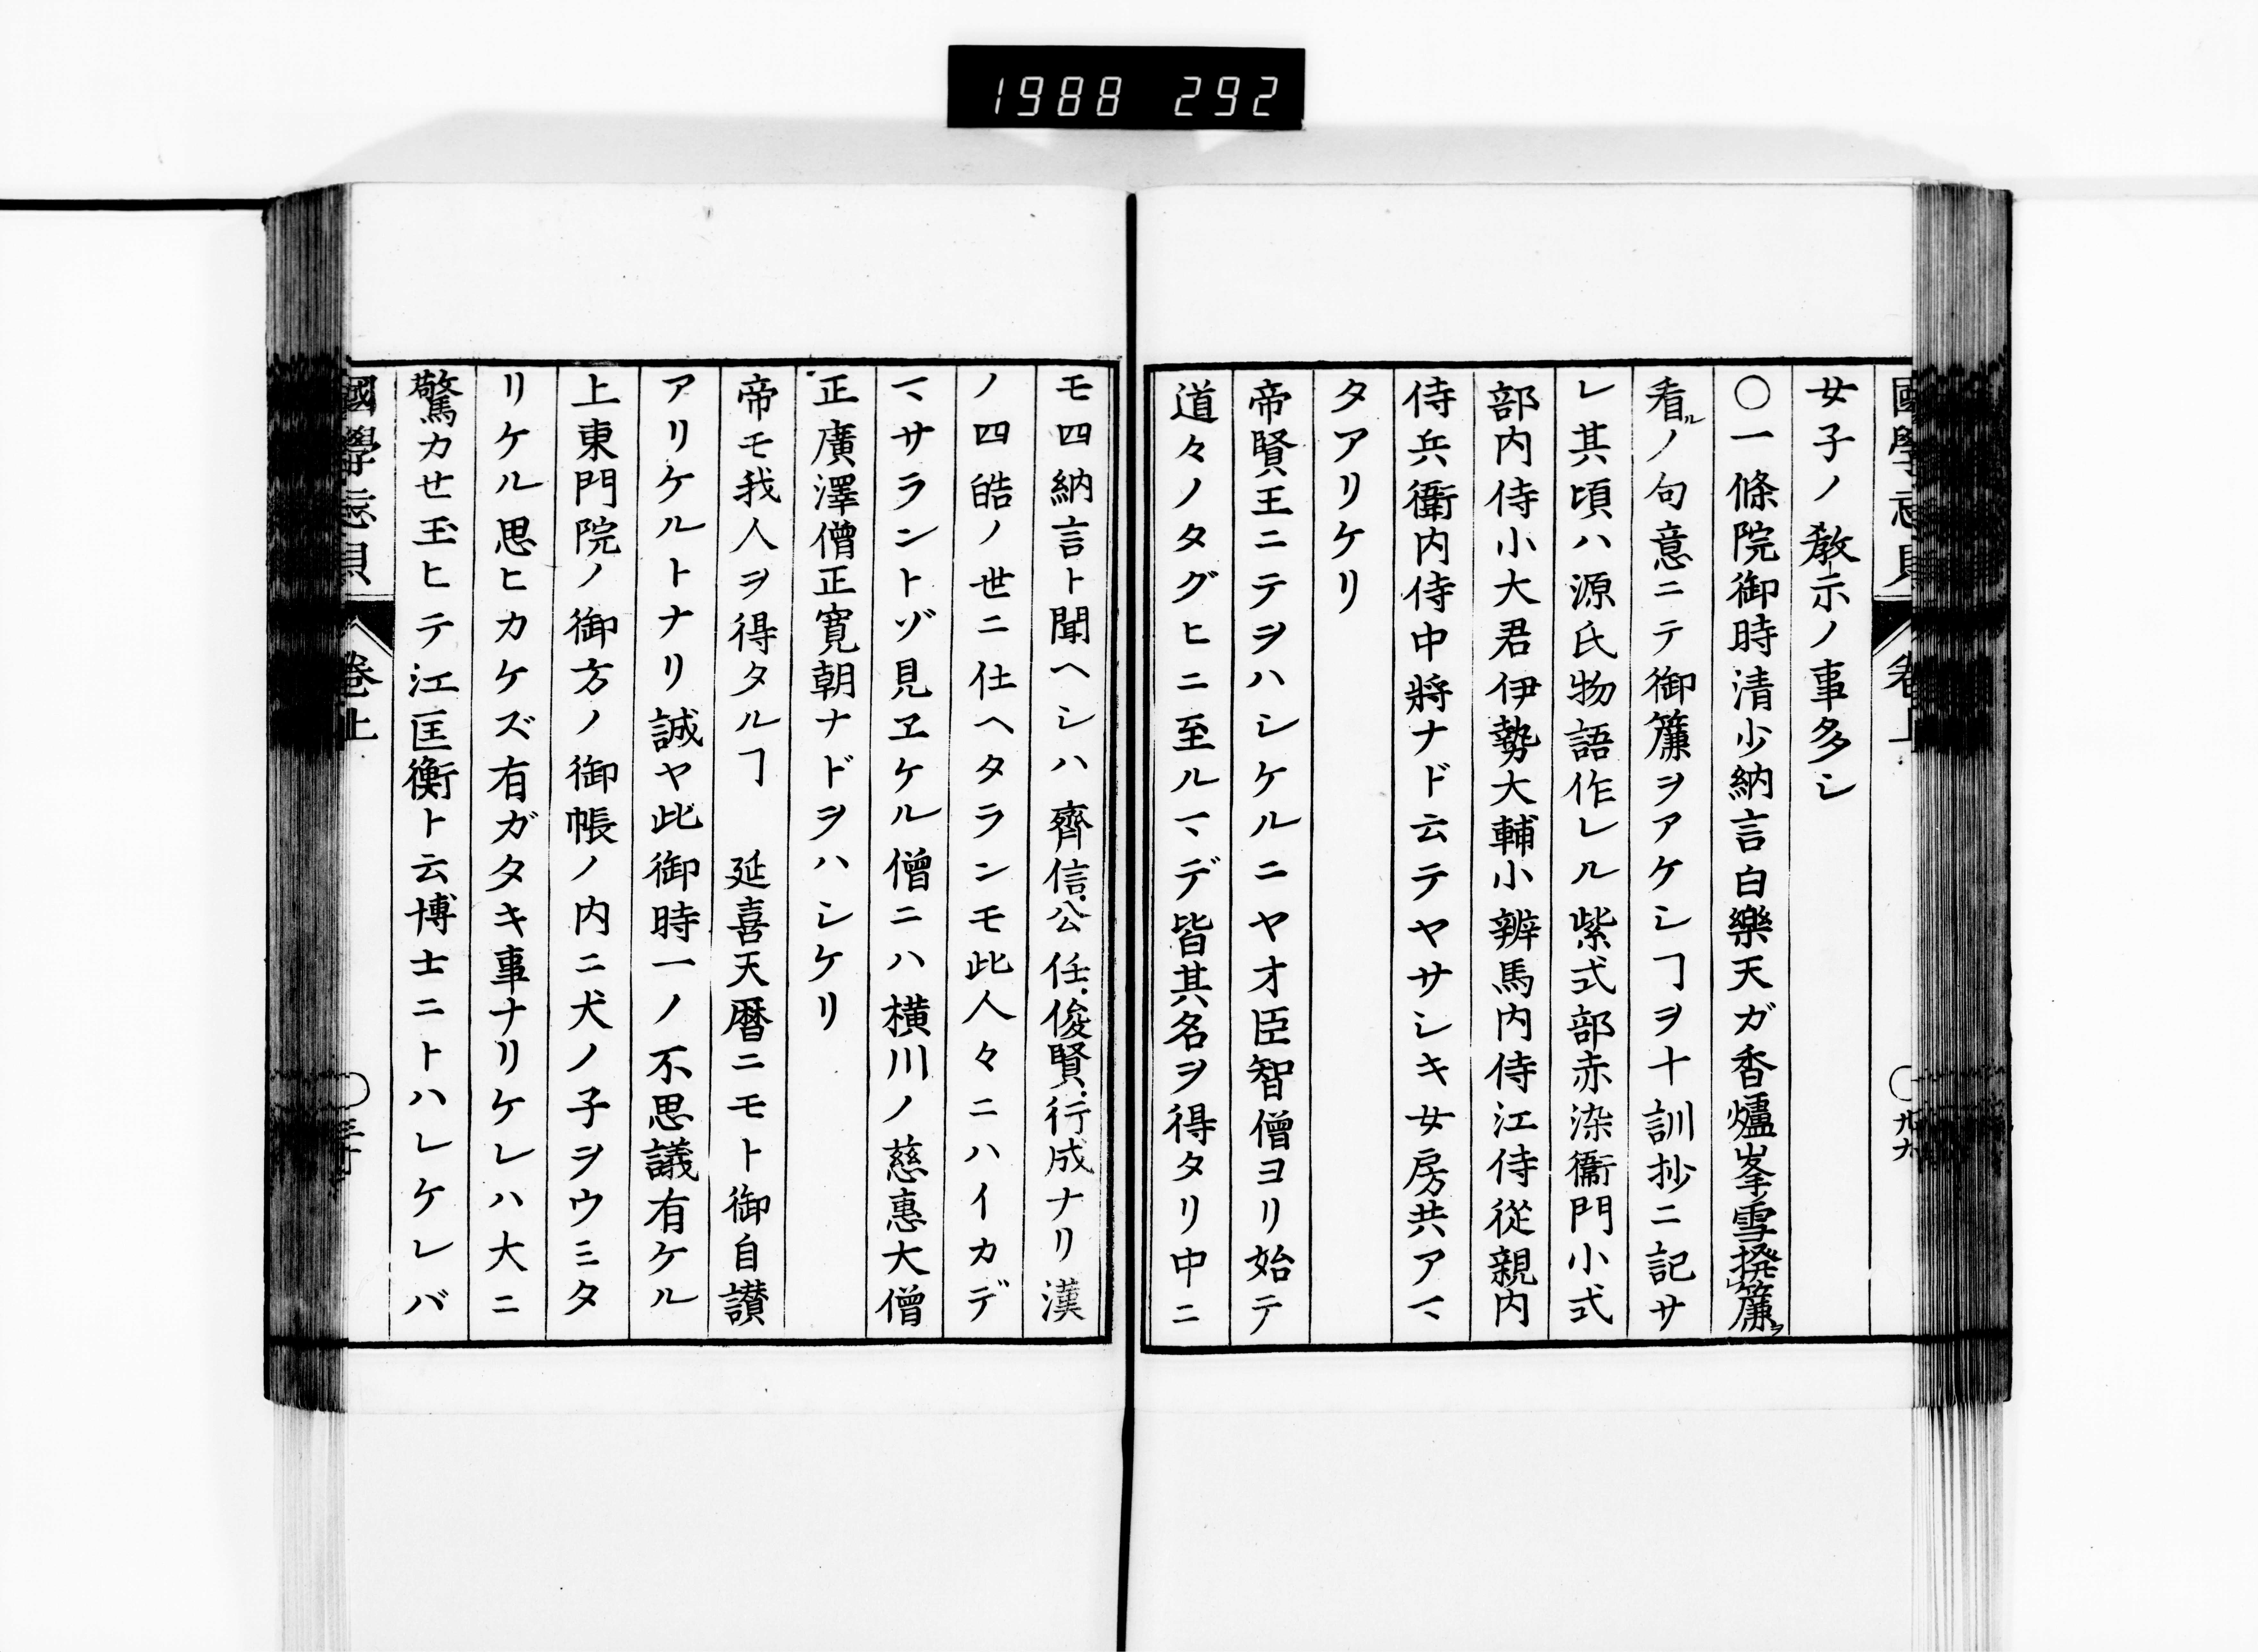 1988 292
女子ノ教示ノ事多シ
〇一條院御時清少納言白樂天ガ香爐峯雪撥簾ヲ
看ルノ句意ニテ御簾ヲアケシヿヲ十訓抄ニ記サ
レ其頃ハ源氏物語作レル紫式部赤染衞門小式
部内侍小大君伊勢大輔小辨馬内侍江侍從親内
侍兵衞内侍中將ナド云テヤサシキ女房共アマ
タアリケリ
帝賢王ニテヲハシケルニヤ才臣智僧ヨリ始テ
道々ノタグヒニ至ルマデ皆其名ヲ得タリ中ニ
モ四納言ト聞ヘシハ齊信公任俊賢行成ナリ漢
ノ四皓ノ世ニ仕ヘタランモ此人々ニハイカデ
マサラントゾ見ヱケル僧ニハ横川ノ慈惠大僧
正廣澤僧正寛朝ナドヲハシケリ
帝モ我人ヲ得タルヿ 延喜天暦ニモト御自讃
アリケルトナリ誠ヤ此御時一ノ不思議有ケル
上東門院ノ御方ノ御帳ノ内ニ犬ノ子ヲウミタ
リケル思ヒカケズ有ガタキ事ナリケレハ大ニ
驚カセ玉ヒテ江匡衡ト云博士ニトハレケレバ
國學忘貝 卷上